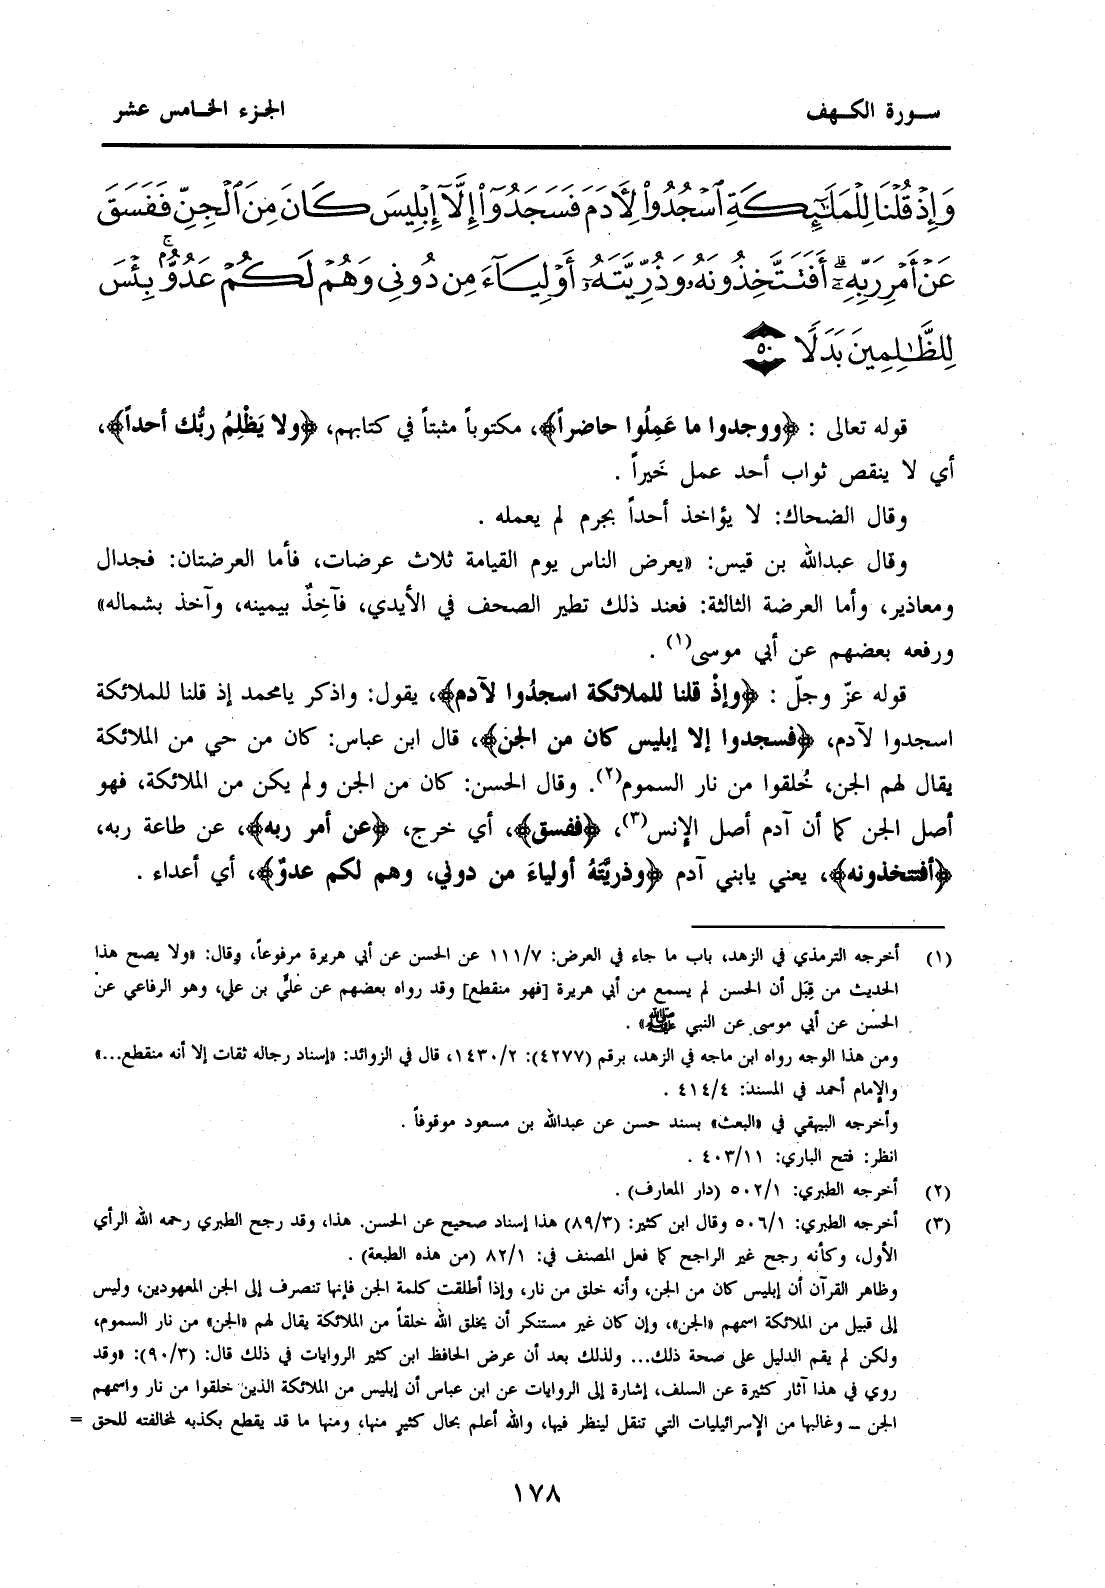 سورة الكهف
الجزء الخامس عشر
وَإِذْ قُلْنَا لِلْمَلَٰٓئِكَةِ ٱسْجُدُوا۟ لِءَادَمَ فَسَجَدُوٓا۟ إِلَّآ إِبْلِيسَ كَانَ مِنَ ٱلْجِنِّ فَفَسَقَ
عَنْ أَمْرِ رَبِّهِۦٓ ۗ أَفَتَتَّخِذُونَهُۥ وَذُرِّيَّتَهُۥٓ أَوْلِيَآءَ مِن دُونِى وَهُمْ لَكُمْ عَدُوٌّۢ ۚ بِئْسَ
لِلظَّٰلِمِينَ بَدَلًا ٥٠
قوله تعالى : ﴿ووجدوا ما عَمِلُوا حاضراً﴾، مكتوباً مثبتاً في كتابهم، ﴿ولا يَظْلِمُ ربُّك أحداً﴾،
أي لا ينقص ثواب أحد عمل خَيراً .
وقال الضحاك: لا يؤاخذ أحداً بجرم لم يعمله .
وقال عبدالله بن قيس: «يعرض الناس يوم القيامة ثلاث عرضات، فأما العرضتان: فجدال
ومعاذير، وأما العرضة الثالثة: فعند ذلك تطير الصحف في الأيدي، فآخِذٌ بيمينه، وآخذ بشماله»
ورفعه بعضهم عن أبي موسى(١) .
قوله عزّ وجلّ : ﴿وإذْ قلنا للملائكة اسجدُوا لآدم﴾، يقول: واذكر يامحمد إذ قلنا للملائكة
اسجدوا لآدم، ﴿فسجدوا إلا إبليس كان من الجن﴾، قال ابن عباس: كان من حي من الملائكة
يقال لهم الجن، خُلقوا من نار السموم(٢). وقال الحسن: كان من الجن ولم يكن من الملائكة، فهو
أصل الجن كما أن آدم أصل الإنس(٣)، ﴿ففسق﴾، أي خرج، ﴿عن أمر ربه﴾، عن طاعة ربه،
﴿أفتتخذونه﴾، يعني يابني آدم ﴿وذريَّتَهُ أولياءَ من دوني، وهم لكم عدوٌ﴾، أي أعداء .
(١) أخرجه الترمذي في الزهد، باب ما جاء في العرض: ١١١/٧ عن الحسن عن أبي هريرة مرفوعاً، وقال: «ولا يصح هذا
الحديث من قِبَل أن الحسن لم يسمع من أبي هريرة [فهو منقطع] وقد رواه بعضهم عن عليِّ بن علي، وهو الرفاعي عن
الحسن عن أبي موسى عن النبي ﷺ» .
ومن هذا الوجه رواه ابن ماجه في الزهد، برقم (٤٢٧٧): ١٤٣٠/٢، قال في الزوائد: «إسناد رجاله ثقات إلا أنه منقطع...»
والإمام أحمد في المسند: ٤١٤/٤ .
وأخرجه البيهقي في «البعث» بسند حسن عن عبدالله بن مسعود موقوفاً .
انظر: فتح الباري: ٤٠٣/١١ .
(٢) أخرجه الطبري: ٥٠٢/١ (دار المعارف) .
(٣) أخرجه الطبري: ٥٠٦/١ وقال ابن كثير: (٨٩/٣) هذا إسناد صحيح عن الحسن. هذا، وقد رجح الطبري رحمه الله الرأي
الأول، وكأنه رجح غير الراجح كما فعل المصنف في: ٨٢/١ (من هذه الطبعة) .
وظاهر القرآن أن إبليس كان من الجن، وأنه خلق من نار، وإذا أطلقت كلمة الجن فإنها تنصرف إلى الجن المعهودين، وليس
إلى قبيل من الملائكة اسمهم «الجن»، وإن كان غير مستنكر أن يخلق الله خلقاً من الملائكة يقال لهم «الجن» من نار السموم،
ولكن لم يقم الدليل على صحة ذلك... ولذلك بعد أن عرض الحافظ ابن كثير الروايات في ذلك قال: (٩٠/٣): «وقد
روي في هذا آثار كثيرة عن السلف، إشارة إلى الروايات عن ابن عباس أن إبليس من الملائكة الذين خلقوا من نار واسمهم
الجن ــ وغالبها من الإسرائيليات التي تنقل لينظر فيها، والله أعلم بحال كثير منها، ومنها ما قد يقطع بكذبه لمخالفته للحق =
١٧٨